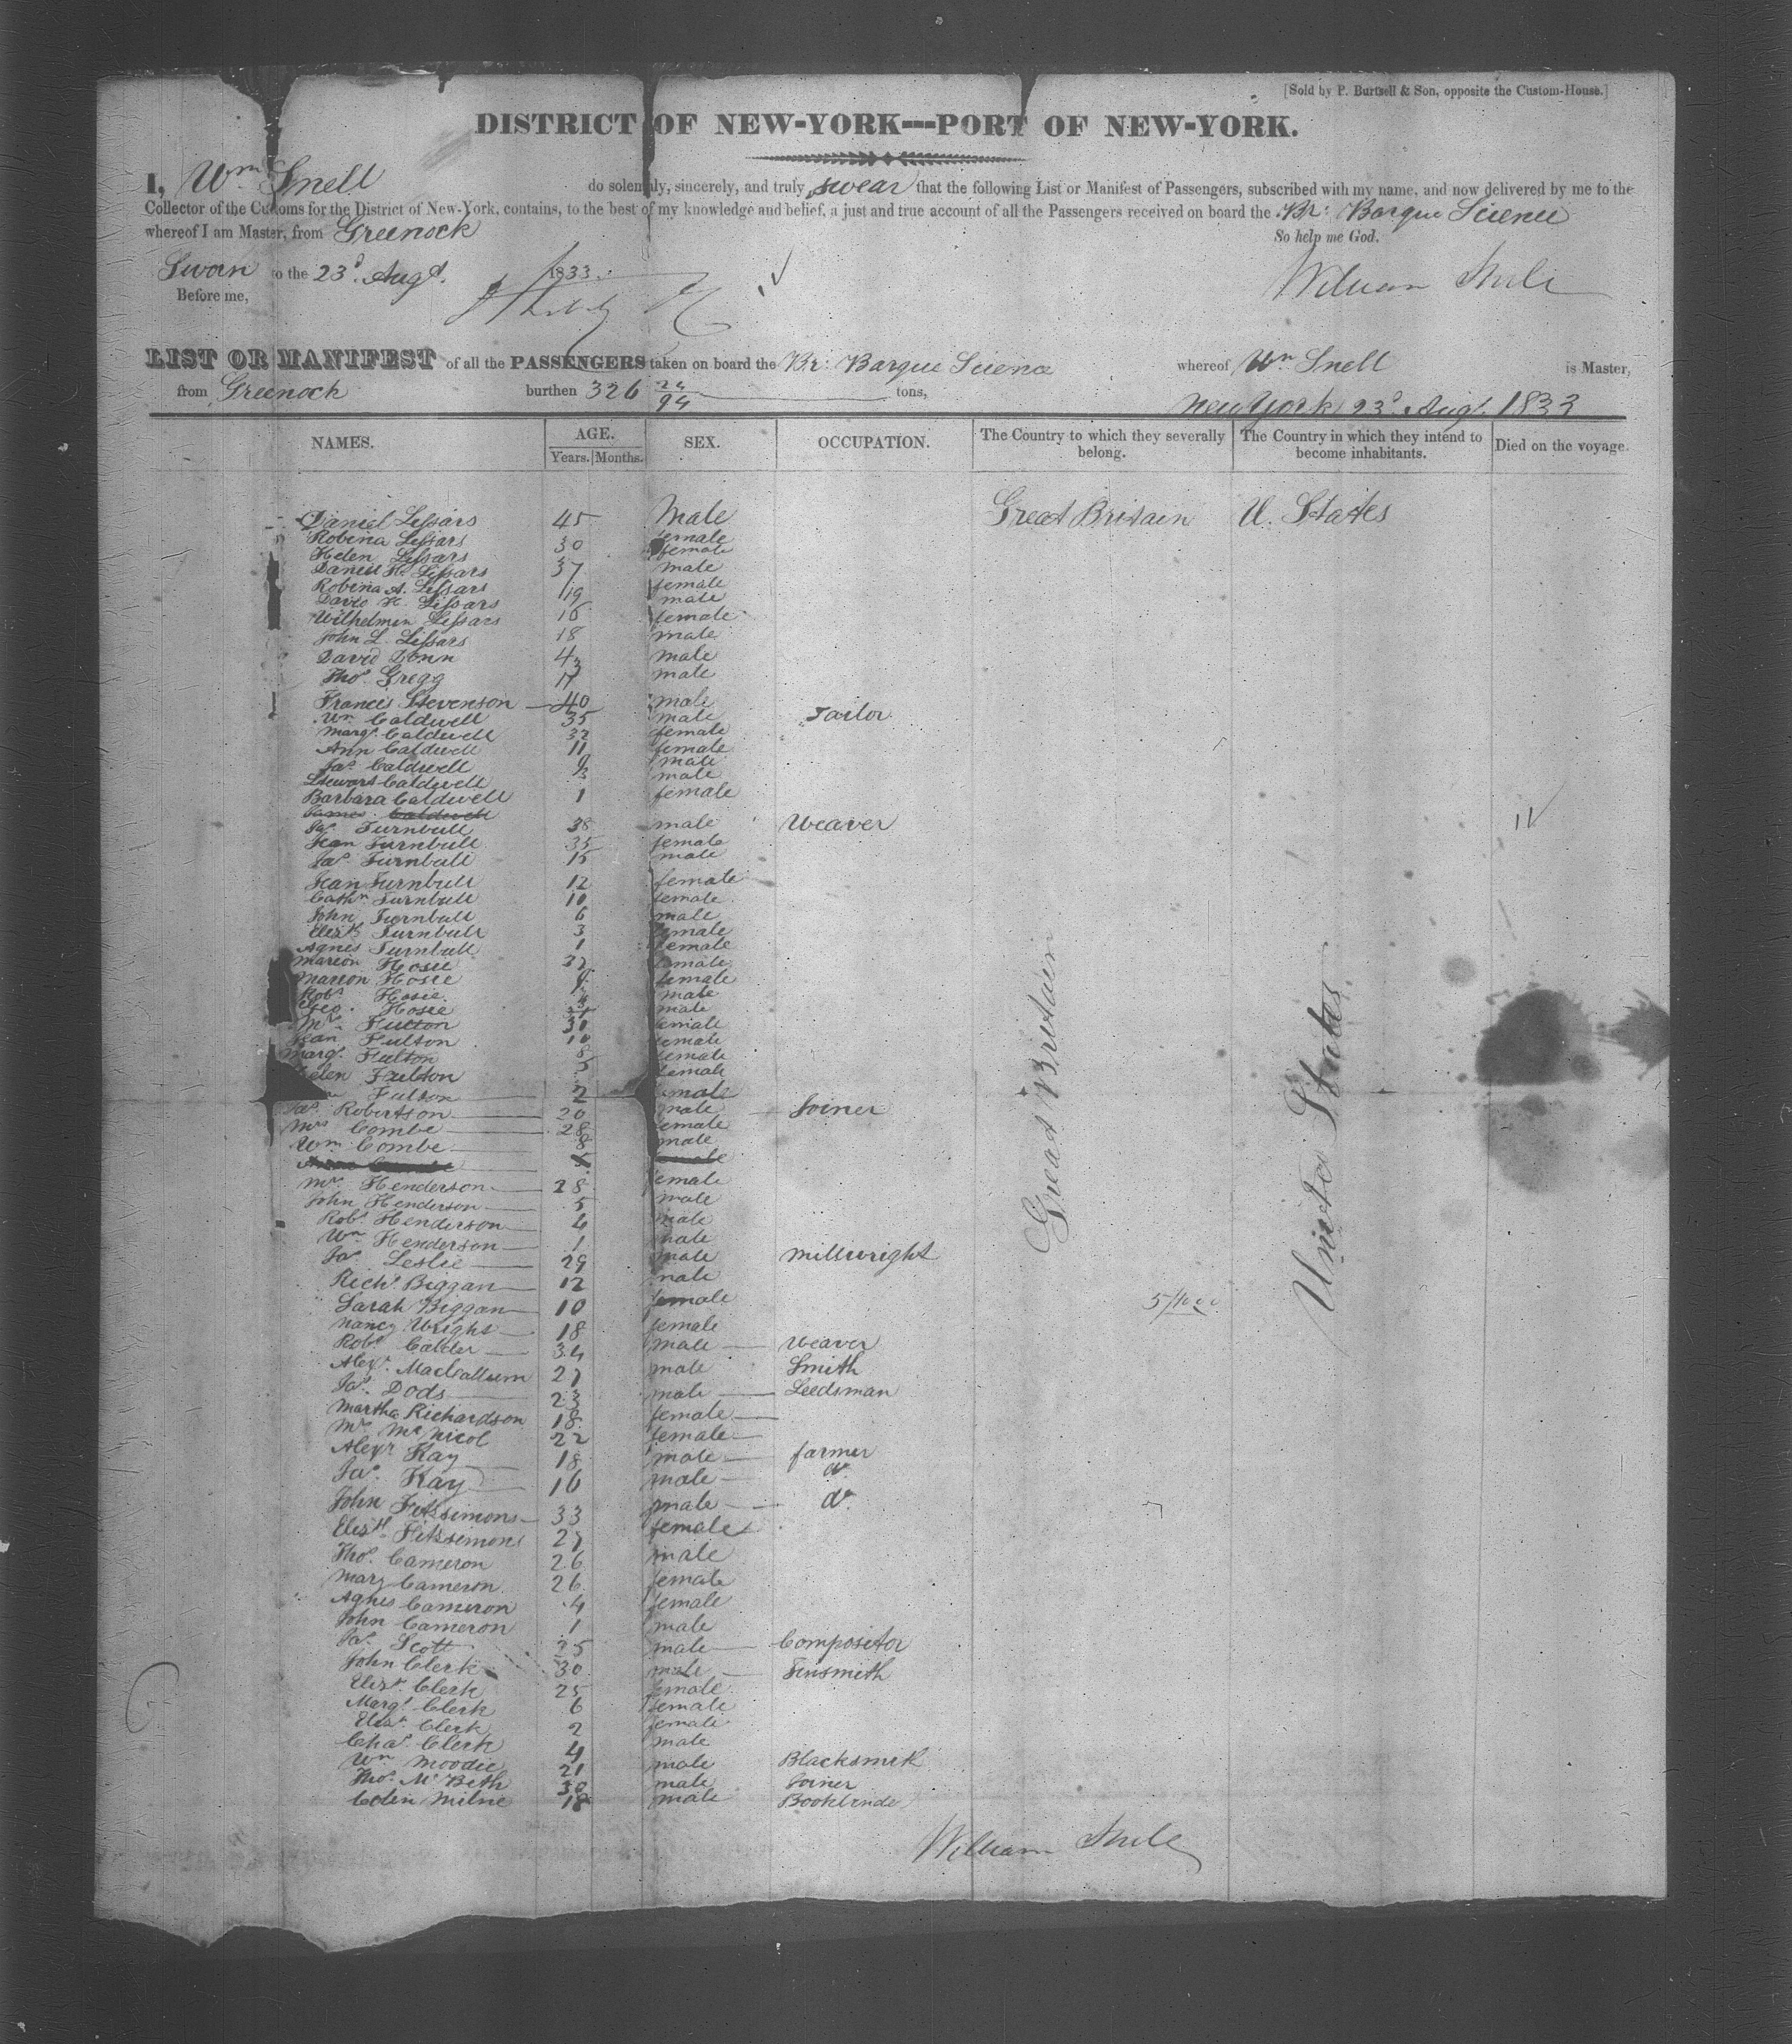 [Sold by P. Burtsell & Son, opposite the Custom-House.]
DISTRICT OF NEW-YORK---PORT OF NEW-YORK.
I, Wm Snell do solemnly, sincerely, and truly swear that the following List or Manifest of Passengers, subscribed with my name, and now delivered by me to the
Collector of the Customs for the District of New-York, contains, to the best of my knowledge and belief, a just and true account of all the Passengers received on board the Br: Barque Science
whereof I am Master, from Greenock So help me God.
Swan to the 23d Augt. 1833.
Before me,
LIST OR MANIFEST of all the PASSENGERS taken on board the Br: Barque Science whereof Wm Snell is Master,
from Greenock burthen 326 24/94 tons, New York 23d Augt. 1833
NAMES. AGE. Years. Months. SEX. OCCUPATION. The Country to which they severally belong. The Country in which they intend to become inhabitants. Died on the voyage.
Daniel Lessars 45 Male Great Britain U. States
Robina Lessars 30 female
Helen Lessars female
Daniel H. Lessars 37 male
Robina A. Lessars female
David H. Lessars 19 male
Wilhelmin Lessars 16 female
John L. Lessars 18 male
David Donn 43 male
Thos. Gregg 17 male
Francis Stevenson 40 male
Wm Caldwell 35 male Tailor
Margt. Caldwell 32 female
Ann Caldwell 11 female
Jas. Caldwell 9 male
Stewart Caldwell 3 male
Barbara Caldwell 1 female
James Caldwell
Jas. Turnbull 38 male Weaver
Jean Turnbull 35 female
Jas. Turnbull 15 male
Jean Turnbull 12 female
Cathn. Turnbull 10 female
John Turnbull 6 male
Elizth Turnbull 3 female
Agnes Turnbull 1 female
Marion Hosie 32 female
Marion Hosie female
Robt. Hosie male
Geo. Hosie male
Mrs. Fulton 30 female
Jean Fulton 10 female
Margt. Fulton 8 female
Helen Fulton 5 female
Fulton 2 female
Jas. Robertson 20 male Joiner
Mrs Combe 28 female
Wm Combe 8 male
Mrs. Henderson 28 female
John Henderson 5 male
Robt. Henderson 4 male
Wm Henderson 1 male
Jas. Leslie 29 male Millwright
Richd. Biggan 12 male
Sarah Biggan 10 female
Nancy Wright 18 female
Robt. Calder 34 male Weaver
Alexr. MacCallum 27 male Smith
Jas. Dods 23 male Seedsman
Martha Richardson 18 female
Mrs McNicol 22 female
Alexr Kay 18 male farmer
Jas. Kay 16 male do
John Fitzsimons 33 male do
Elizth Fitzsimons 27 female
Thos. Cameron 26 male
Mary Cameron 26 female
Agnes Cameron 4 female
John Cameron 1 male
Jas. Scott 25 male Compositor
John Clerk 30 male Tinsmith
Elizt. Clerk 25 female
Margt. Clerk 6 female
Elizt. Clerk 2 female
Chas. Clerk 4 male
Wm Moodie 21 male Blacksmith
Thos. McBeth 30 male Joiner
Colin Milne 18 male Bookbinder
Great Britain
United States